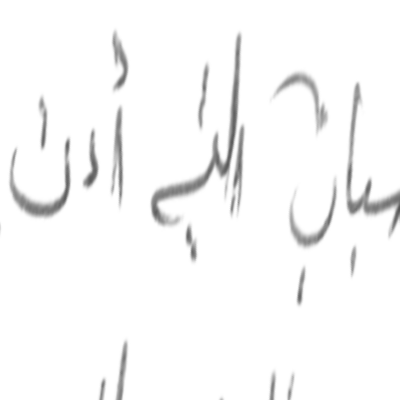 سباب التي أدت